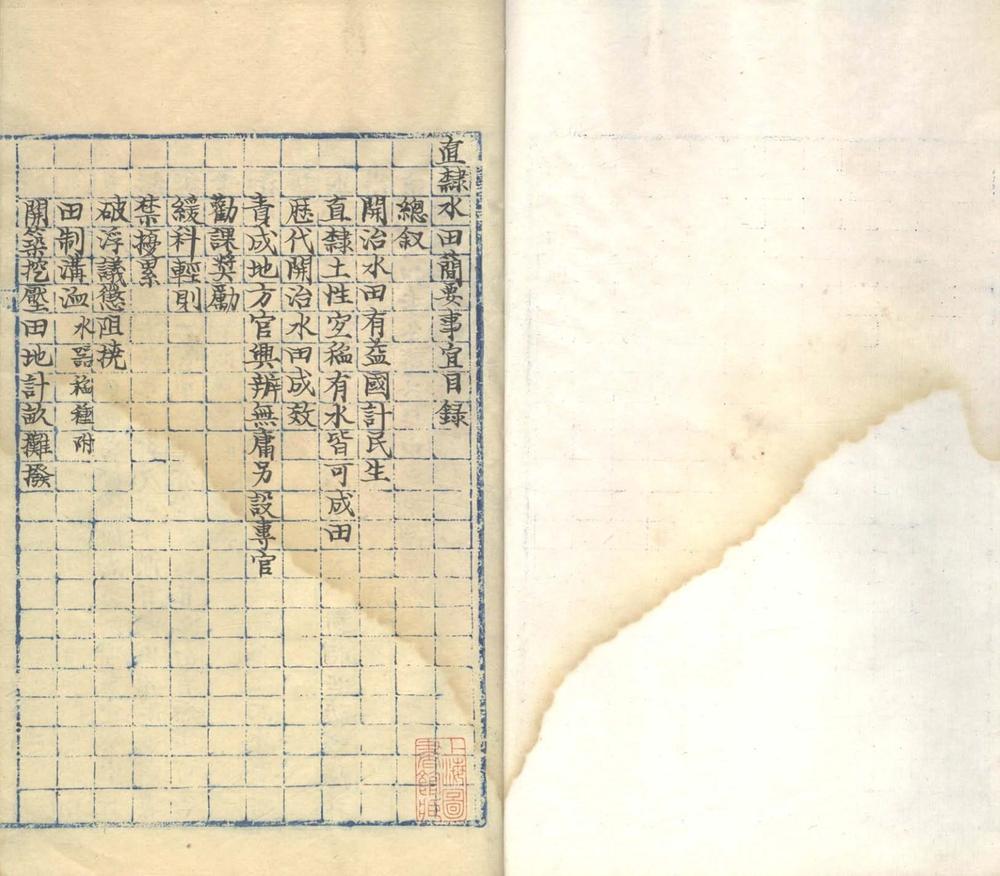 直隸水田蕳要事宜目録
總叙
開治水田有益國計民生
直隸土性宜稻有水皆可成田
歴代開治水田成效
責成地方官興辦無庸另設專官
勸課奬勵
緩科輕則
禁擾累
破浮議懲阻撓
田制溝洫水器稻種附
開築挖壓田地計畝攤撥
上海圖
書館藏